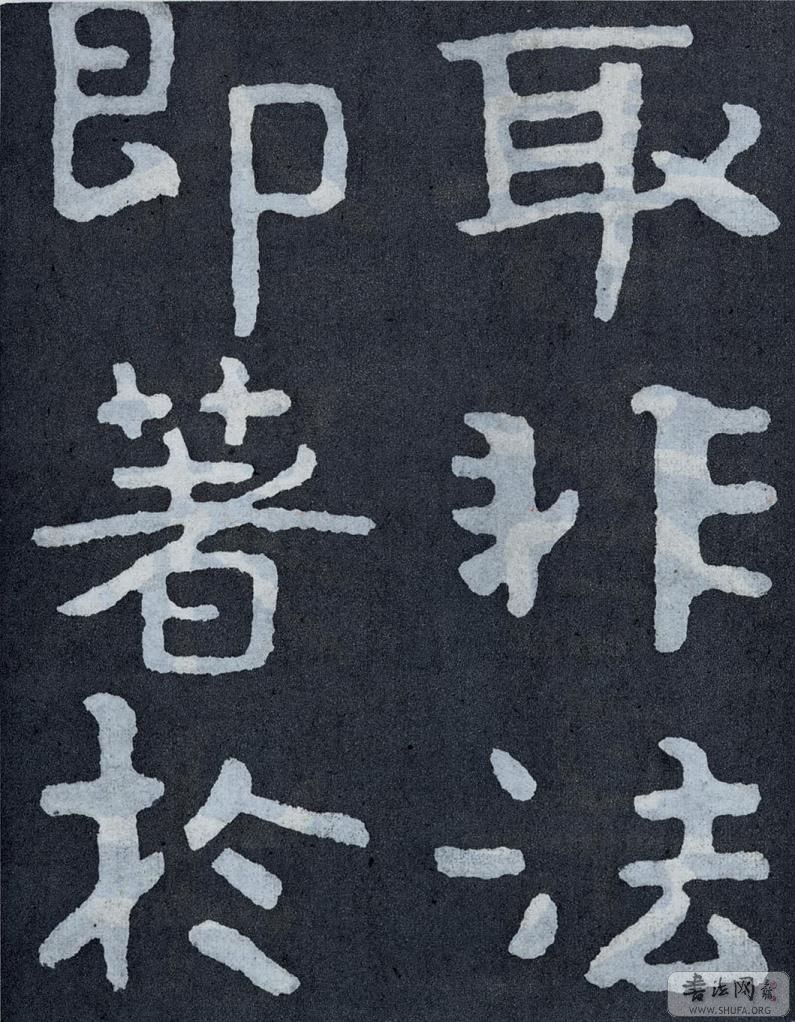 取非法
即著於
書法网
WWW.SHUFA.ORG